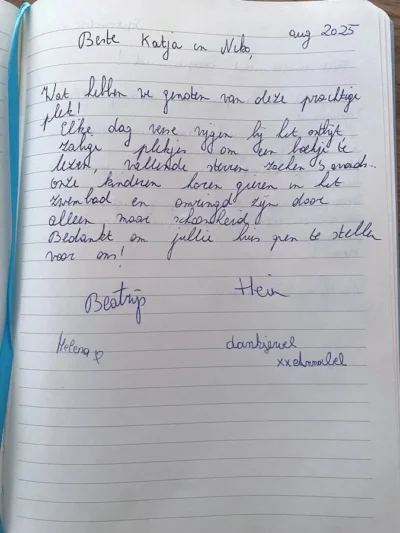 aug 2025
Beste Katja en Niko,
Wat hebben we genoten van deze prachtige
plek!
Elke dag verse vijgen bij het ontbijt
zalige plekjes om een boekje te
lezen, vallende sterren zoeken 's avonds...
onze kinderen horen gieren in het
zwembad en omringd zijn door
alleen maar schoonheid.
Bedankt om jullie huis open te stellen
voor ons!
Beatrijs
Hein
Helena
dankjewel